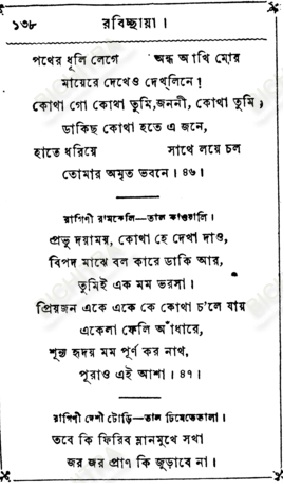 ১৩৮ রবিচ্ছায়া।
পথের ধূলি লেগে অন্ধ আখি মোর
মায়েরে দেখেও দেখ্‌লিনে?
কোথা গো কোথা তুমি, জননী, কোথা তুমি,
ডাকিছ কোথা হতে এ জনে,
হাতে ধরিয়ে সাথে লয়ে চল
তোমার অমৃত ভবনে। ৪৬।
রাগিণী রামকেলি—তাল কাওয়ালি।
প্রভু দয়াময়, কোথা হে দেখা দাও,
বিপদ মাঝে বল কারে ডাকি আর,
তুমিই এক মম ভরসা।
প্রিয়জন একে একে কে কোথা চ'লে যায়
একেলা ফেলি আঁধারে,
শূন্য হৃদয় মম পূর্ণ কর নাথ,
পূরাও এই আশা। ৪৭।
রাগিণী দেশী টোড়ি—তাল ঢিমেতেতালা।
তবে কি ফিরিব ম্লানমুখে সখা
জর জর প্রাণ কি জুড়াবে না।